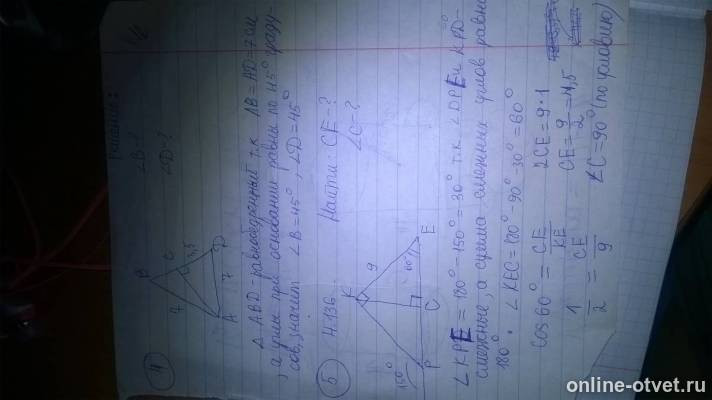 Решение:
1/2
④
B
7
C
3,5
A
7
D
∠B-?
∠D-?
Δ ABD-равнобедренный т.к AB=AD=7см
, а углы при основании равны по 45° граду-
сов, значит ∠B=45°, ∠D=45°
⑤ Ч.136
Найти: CE-?
∠C-?
K
9
150°
60°
P
C
E
∠KPE = 180°-150°=30° т.к ∠DPE и ∠KPD-
смежные, а сумма смежных углов равна
180°. ∠KEC=180°-90°-30°=60°
cos60° = CE/KE
2CE=9·1
1/2 = CE/9
CE=9/2=4,5
∠C=90° (по условию)
online-otvet.ru